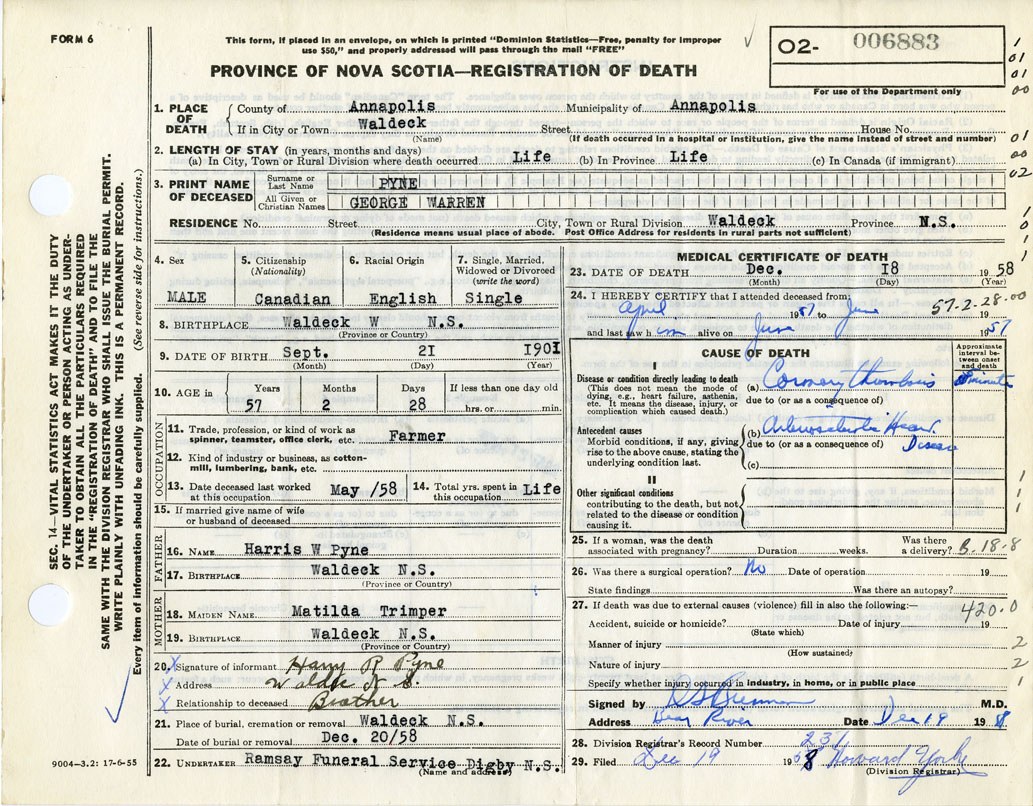 FORM 6
This form, if placed in an envelope, on which is printed "Dominion Statistics—Free, penalty for improper
use $50," and properly addressed will pass through the mail "FREE"
O2- 006883
For use of the Department only
PROVINCE OF NOVA SCOTIA—REGISTRATION OF DEATH
1. PLACE OF DEATH
County of Annapolis Municipality of Annapolis
If in City or Town Waldeck Street House No.
(Name) (If death occurred in a hospital or institution, give the name instead of street and number)
2. LENGTH OF STAY (in years, months and days)
(a) In City, Town or Rural Division where death occurred Life (b) In Province Life (c) In Canada (if immigrant)
3. PRINT NAME OF DECEASED
Surname or Last Name PYNE
All Given or Christian Names GEORGE WARREN
RESIDENCE No. Street City, Town or Rural Division Waldeck Province N.S.
(Residence means usual place of abode. Post Office Address for residents in rural parts not sufficient)
4. Sex
MALE
5. Citizenship
(Nationality)
Canadian
6. Racial Origin
English
7. Single, Married,
Widowed or Divorced
(write the word)
Single
8. BIRTHPLACE Waldeck W N.S.
(Province or Country)
9. DATE OF BIRTH Sept. 2I I90I
(Month) (Day) (Year)
10. AGE in
Years Months Days If less than one day old
57 2 28 hrs. or min.
OCCUPATION
11. Trade, profession, or kind of work as
spinner, teamster, office clerk, etc. Farmer
12. Kind of industry or business, as cotton-
mill, lumbering, bank, etc.
13. Date deceased last worked
at this occupation May /58
14. Total yrs. spent in
this occupation Life
15. If married give name of wife
or husband of deceased
FATHER
16. NAME Harris W Pyne
17. BIRTHPLACE Waldeck N.S.
(Province or Country)
MOTHER
18. MAIDEN NAME Matilda Trimper
19. BIRTHPLACE Waldeck N.S.
(Province or Country)
20. x Signature of informant Harry R Pyne
x Address Waldec N S.
x Relationship to deceased Brother
21. Place of burial, cremation or removal Waldeck N.S.
Date of burial or removal Dec. 20/58
22. UNDERTAKER Ramsay Funeral Service Digby N.S.
(Name and address)
MEDICAL CERTIFICATE OF DEATH
23. DATE OF DEATH Dec. I8 1958
(Month) (Day) (Year)
24. I HEREBY CERTIFY that I attended deceased from:
57-2-28-00
April 1957 to June 19
and last saw him alive on June 1957
CAUSE OF DEATH
Approximate
interval be-
tween onset
and death
I
Disease or condition directly leading to death
(This does not mean the mode of
dying, e.g., heart failure, asthenia,
etc. It means the disease, injury, or
complication which caused death.)
(a) Coronary Thrombosis minute
due to (or as a consequence of)
Antecedent causes
Morbid conditions, if any, giving
rise to the above cause, stating the
underlying condition last.
(b) Arteriosclerotic Heart
due to (or as a consequence of) Disease
(c)
II
Other significant conditions
contributing to the death, but not
related to the disease or condition
causing it.
25. If a woman, was the death
associated with pregnancy? Duration weeks.
Was there
a delivery? B-18-8
26. Was there a surgical operation? No Date of operation 19
State findings Was there an autopsy?
27. If death was due to external causes (violence) fill in also the following:— 420.0
Accident, suicide or homicide? Date of injury 19
(State which)
Manner of injury
(How sustained)
Nature of injury
Specify whether injury occurred in industry, in home, or in public place
Signed by M.D.
Address Bear River Date Dec 19 1958
28. Division Registrar's Record Number 231
29. Filed Dec 19 1958 Howard York
(Division Registrar)
1
01
01
00
01
00
02
1
0
1
1
1
1
2
2
1
SEC. 14—VITAL STATISTICS ACT MAKES IT THE DUTY
OF THE UNDERTAKER OR PERSON ACTING AS UNDER-
TAKER TO OBTAIN ALL THE PARTICULARS REQUIRED
IN THE "REGISTRATION OF DEATH" AND TO FILE THE
SAME WITH THE DIVISION REGISTRAR WHO SHALL ISSUE THE BURIAL PERMIT.
WRITE PLAINLY WITH UNFADING INK. THIS IS A PERMANENT RECORD.
Every item of information should be carefully supplied. (See reverse side for instructions.)
9004—3.2: 17-6-55